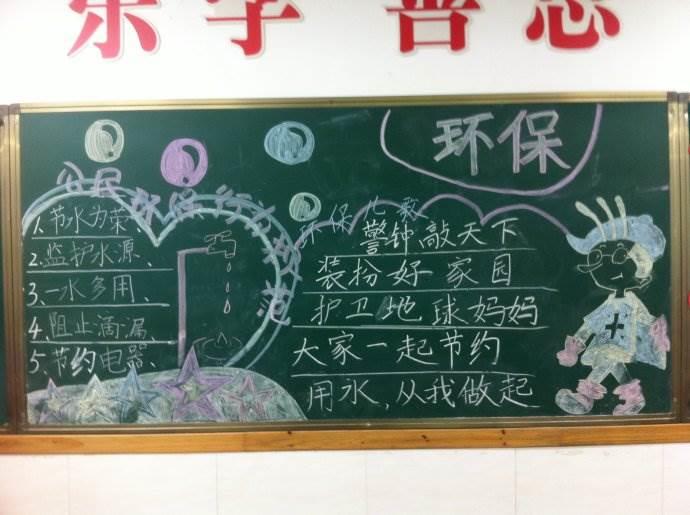 乐学 善思
环保
公民环保行为规范
1.节水为荣、
2.监护水源、
3.一水多用、
4.阻止滴漏、
5.节约电器、
环保儿歌
警钟敲天下
装扮好家园
护卫地球妈妈
大家一起节约
用水,从我做起